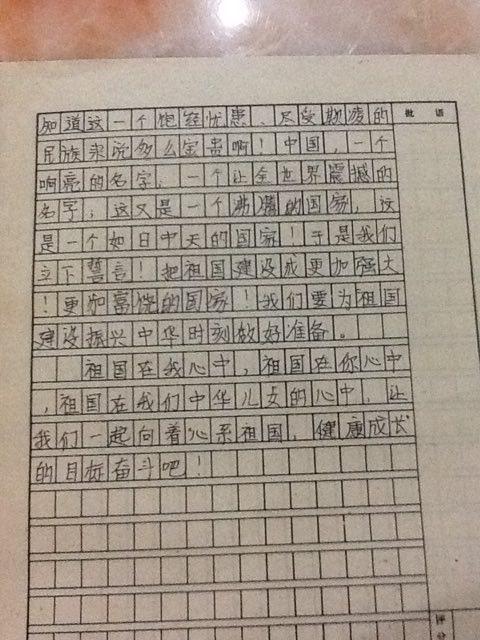 知道这一个饱经忧患、尽受欺凌的
批语
民族来说多么宝贵啊！中国，一个
响亮的名字，一个让全世界震撼的
名字，这又是一个沸腾的国家，这
是一个如日中天的国家！于是我们
立下誓言！把祖国建设成更加强大
！更加富饶的国家！我们要为祖国
建设振兴中华时刻做好准备。
祖国在我心中，祖国在你心中
，祖国在我们中华儿女的心中，让
我们一起向着心系祖国，健康成长
的目标奋斗吧！
评分